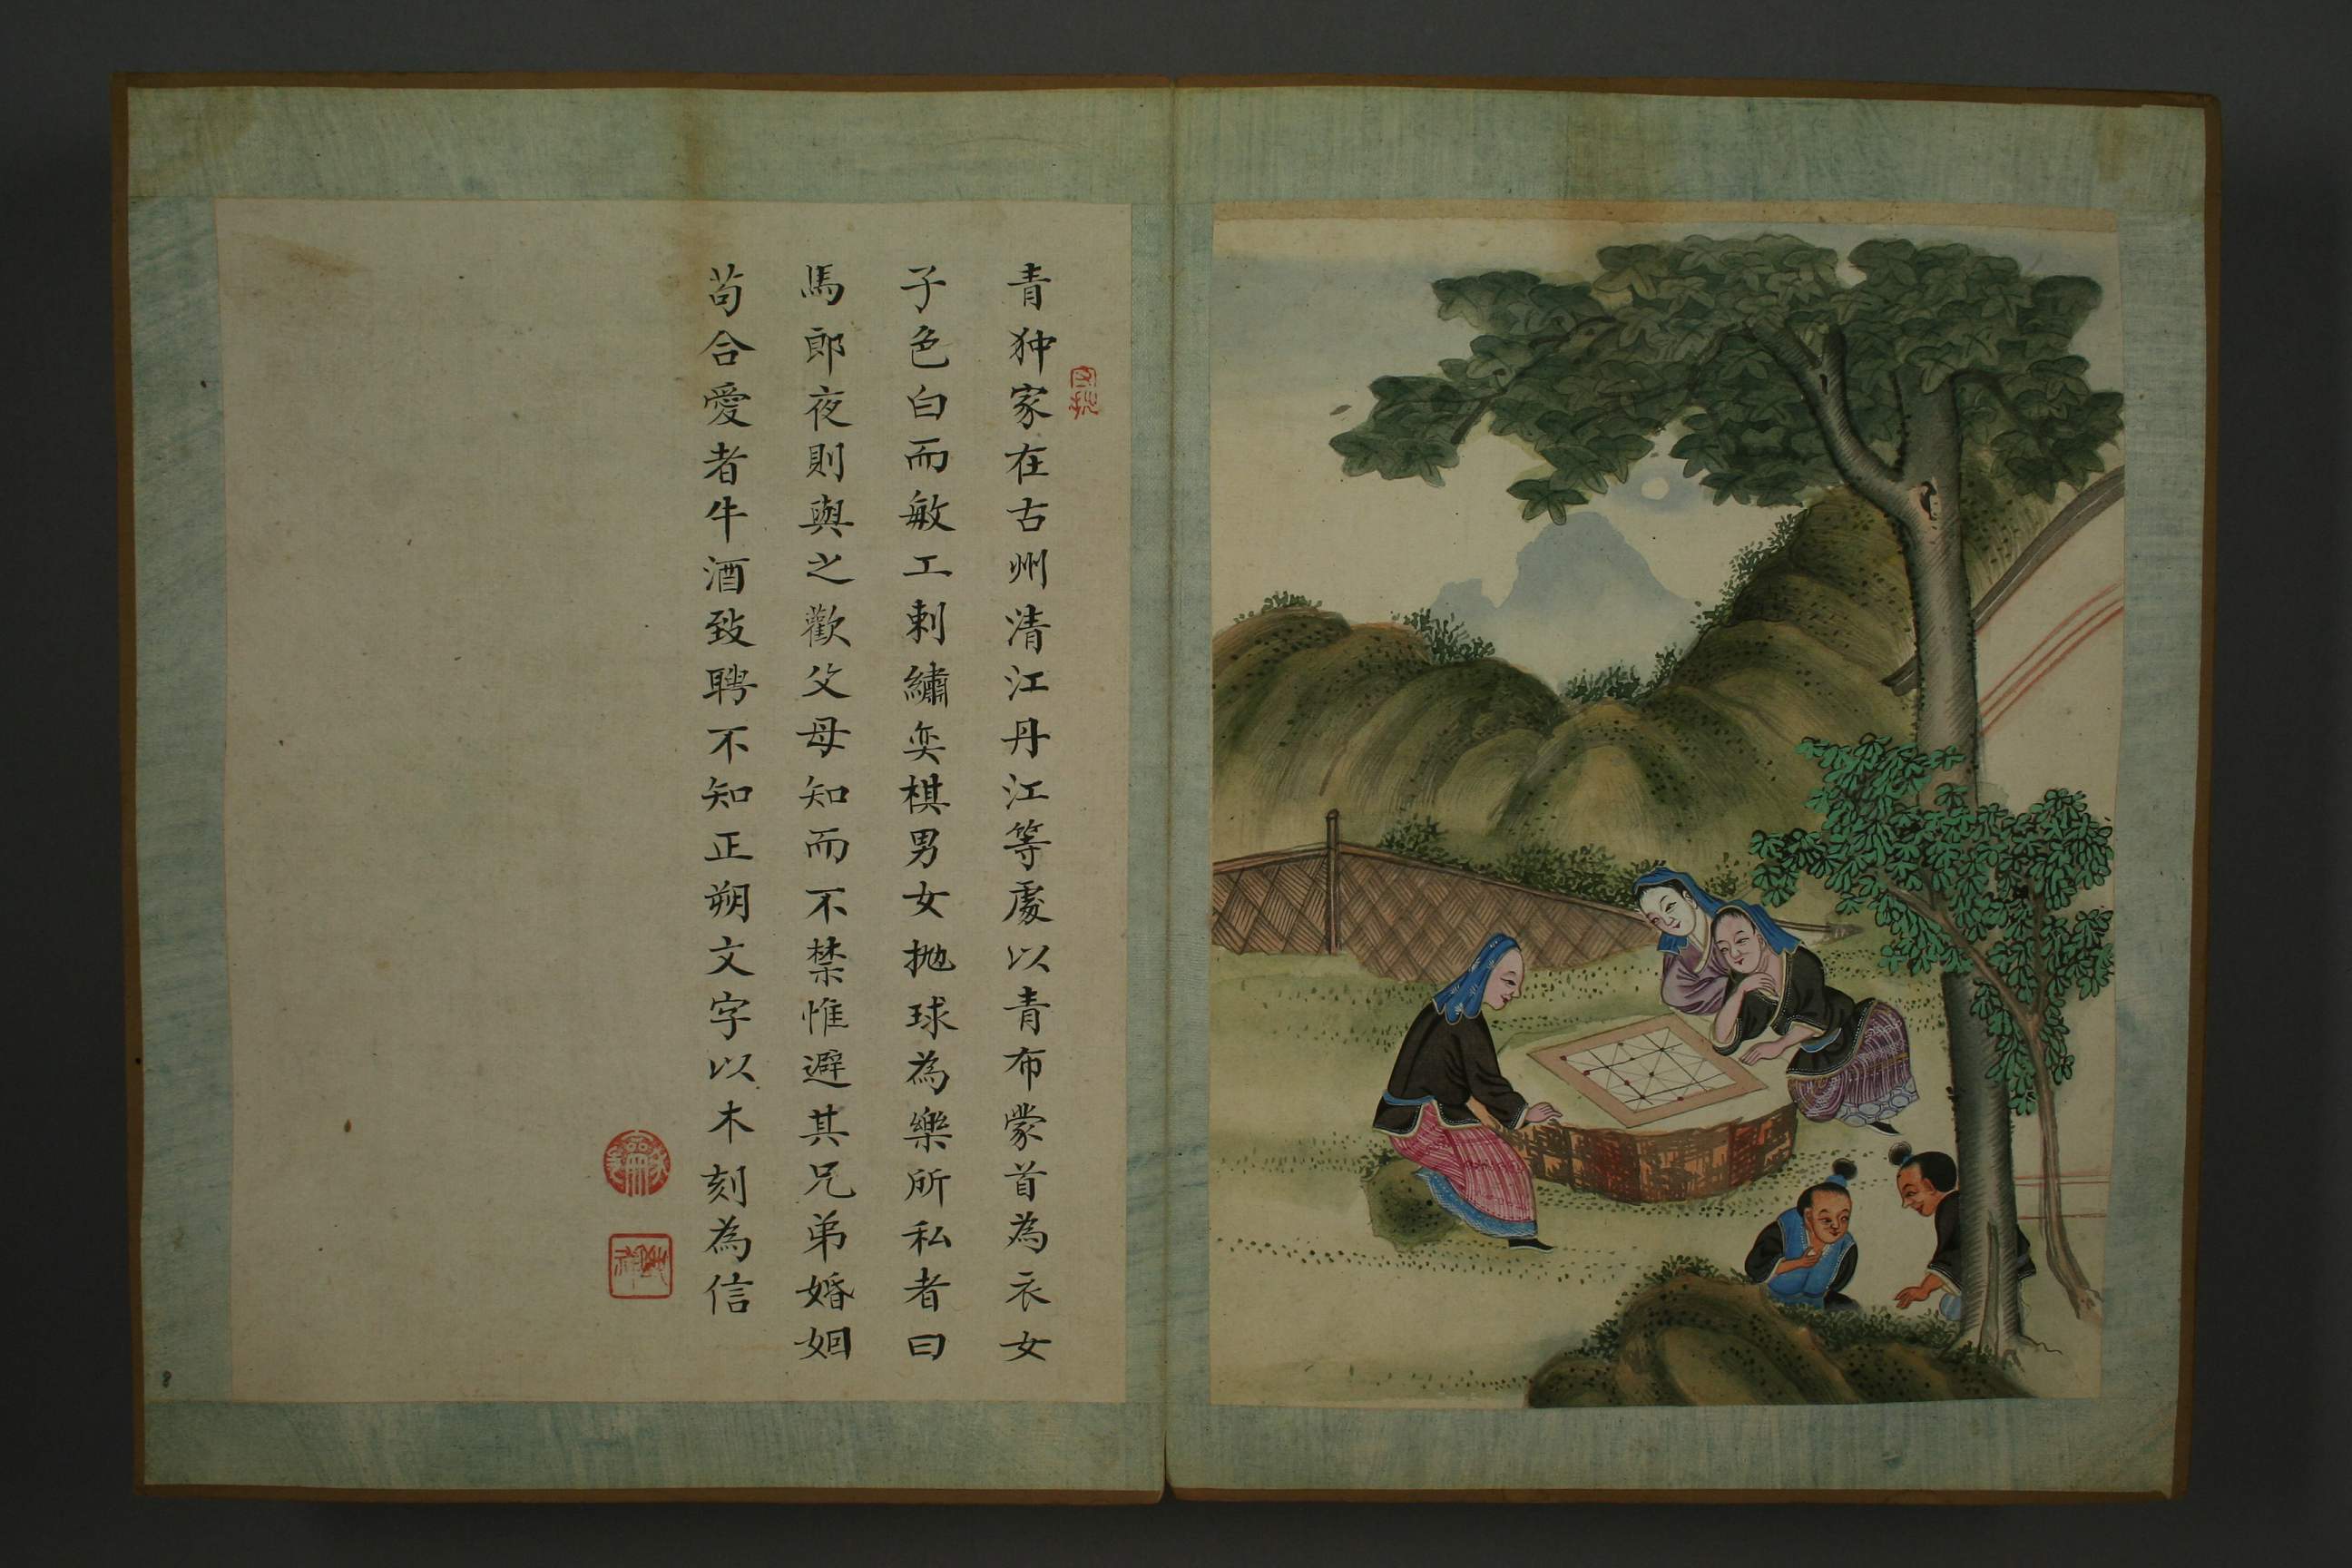 青狆家在古州清江丹江等處以青布蒙首為衣女
子色白而敏工刺繡奕棋男女抛球為樂所私者曰
馬郎夜則與之歡父母知而不禁惟避其兄弟婚姻
苟合愛者牛酒致聘不知正朔文字以木刻為信
8